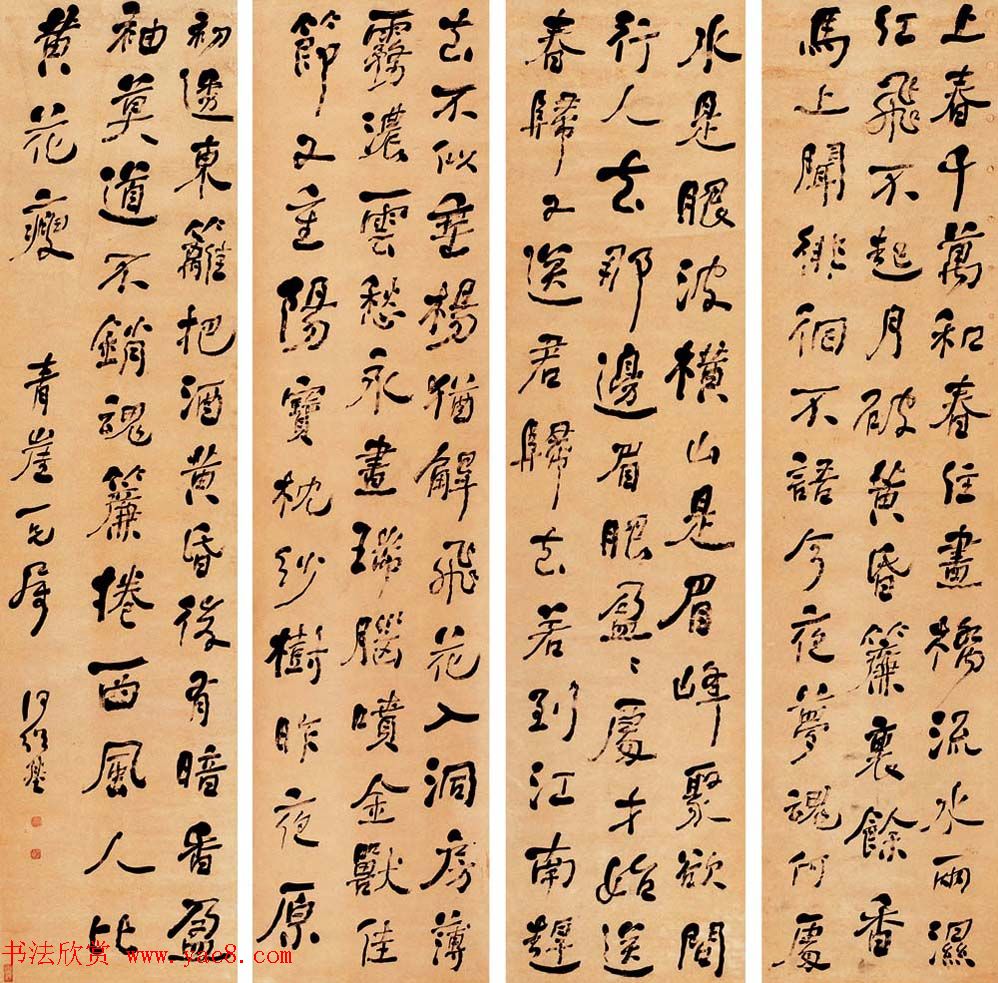 上春千萬和春住畫橋流水雨濕
紅飛不起月破黃昏簾裏餘香
馬上聞徘徊不語今夜夢魂何處
水是眼波橫山是眉峰聚欲問
行人去那邊眉眼盈〻處才始送
春歸又送君歸去若到江南趕
去不似垂楊猶解飛花入洞房薄
霧濃雲愁永晝瑞腦噴金獸佳
節又重陽寶枕紗樹昨夜原
初透東籬把酒黃昏後有暗香盈
袖莫道不銷魂簾捲西風人比
黃花瘦 青崖一兄屬 何紹基
书法欣赏 www.yac8.com